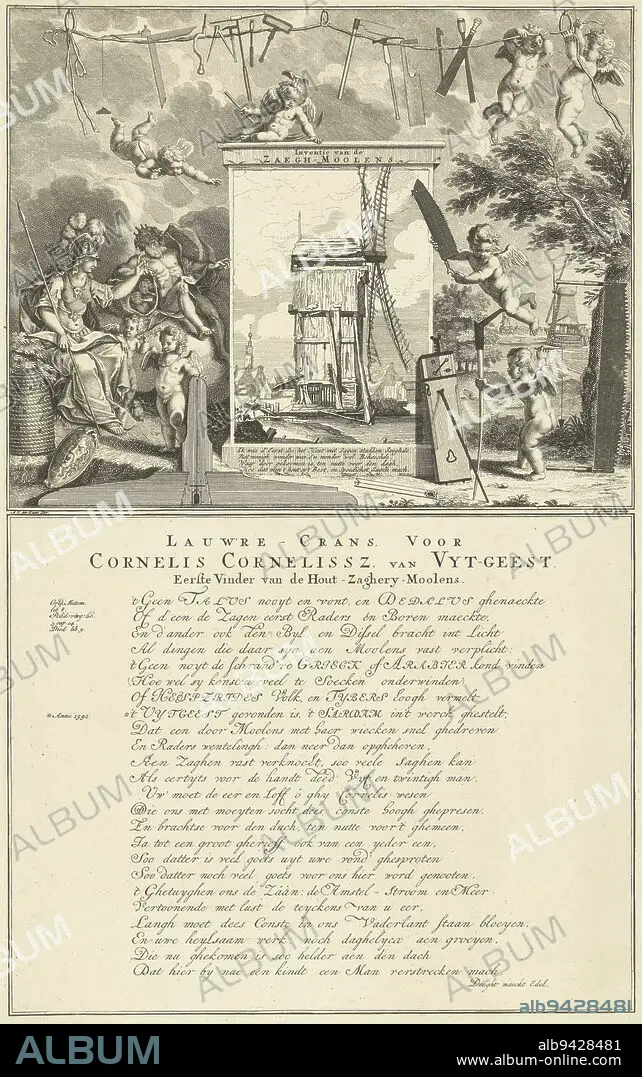 Inventie van de
ZAEGH-MOOLENS
LAUWRE-CRANS, VOOR
CORNELIS CORNELISSZ. VAN VYT-GEEST.
Eerste Vinder van de Hout-Zaghery-Moolens.
't Geen TALUS nooyt en vont, en DEDALUS ghenaeckte
Of d'een de Zagen eerst Raders en Boren maeckte,
En d'ander ook den Byl, en Dissel bracht int Licht
Al dingen die daar zyn aen Moolens vast verplicht:
't Geen noyt de schrand're GRIECK of ARABIER kond vinden
Hoe wel sy konst veel te Soecken onderwinden
Of HESPERIDES Volk, en TYBERS Loogh vermelt
Anno 1592
't VYTGEEST gevonden is, 't SARDAM int werck ghestelt;
Dat een door Moolens met haer wiecken snel ghedreven
En Raders wentelingh: dan neer dan opgheheven,
Aen Zaghen vast verknocht, soo veele Saghen kan
Als eertyts voor de handt deed Vyf en twintigh man,
Uw' moet de eer en Loff, ô ghy Cornelis wesen
Die ons met moeyten socht dees Conste hoogh ghepresen,
En brachtse voor den dach, ten nutte voor't ghemeen,
Ja tot een groot gherieff ook van een yeder een,
Soo datter is veel goets uyt uwe vond ghesproten
Soo datter noch veel goets voor ons hier word genooten,
't Ghetuyghen ons de Zään, de Amstel-Stroom en Meer
Vertoonende met lust de teyckens van u eer,
Langh moet dees Const in ons Vaderlant staan bloeyen,
En uwe heylsaam werk noch daghelycx aen groeyen,
Die nu ghekomen is soo helder aen den dach
Dat hier by nae een kindt een Man verstrecken mach.
Deught maeckt Edel.
ALBUM
alb9428481
alb9428481
www.album-online.com